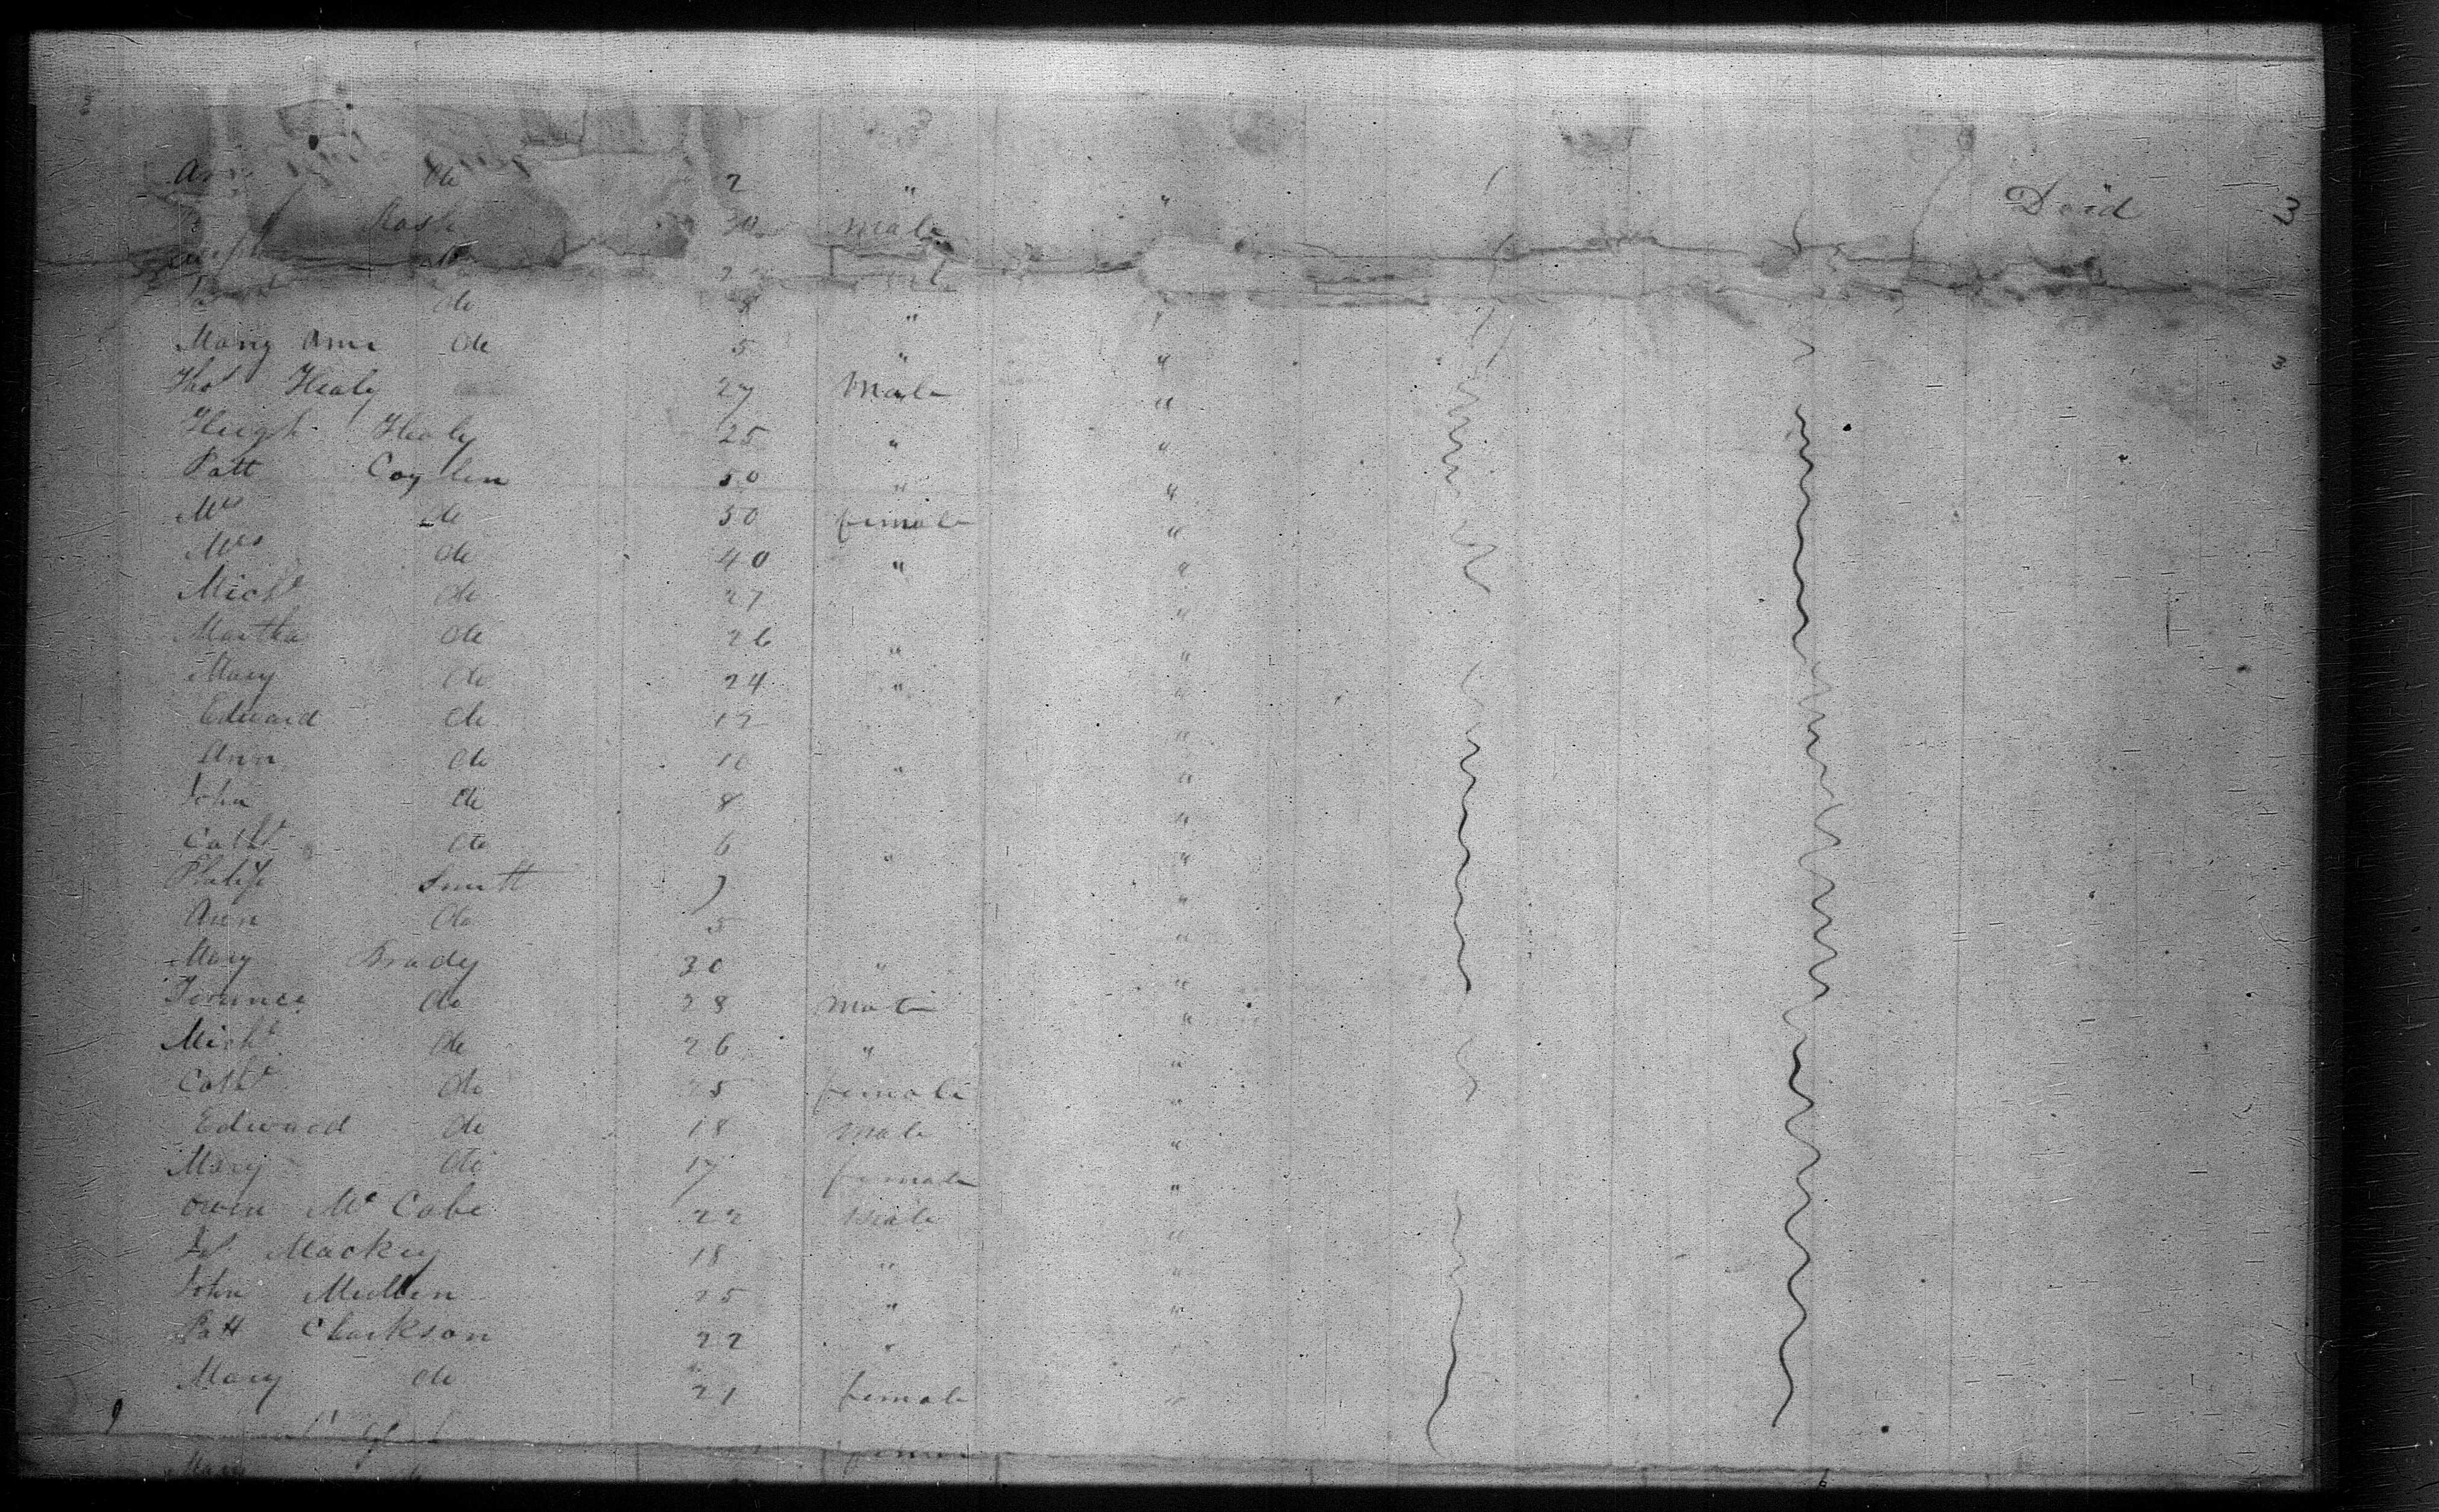 do 2 " "
Rash 30 male Died 3
do
do "
Mary Ann do 5 " " 3
Thos Healy 27 Male "
Hugh Healy 25 " "
Patt Coyllen 50 " "
Mrs do 50 female "
Mrs do 40 " "
Michl do 27 "
Martha do 26 " "
Mary do 24 " "
Edward do 12 "
Ann do 10 " "
John do 8 "
Cathe do 6 " "
Philip Smith 7 "
Ann do 5 "
Mary Brady 30 " "
Terrence do 28 male "
Michl do 26 " "
Cathe do 25 female "
Edward do 18 male "
Mary do 17 female "
Owen Mc Cabe 22 Male "
Jas Mackey 18 " "
John Mullen 25 " "
Patt Clarkson 22 "
Mary do 21 female "
Mary do